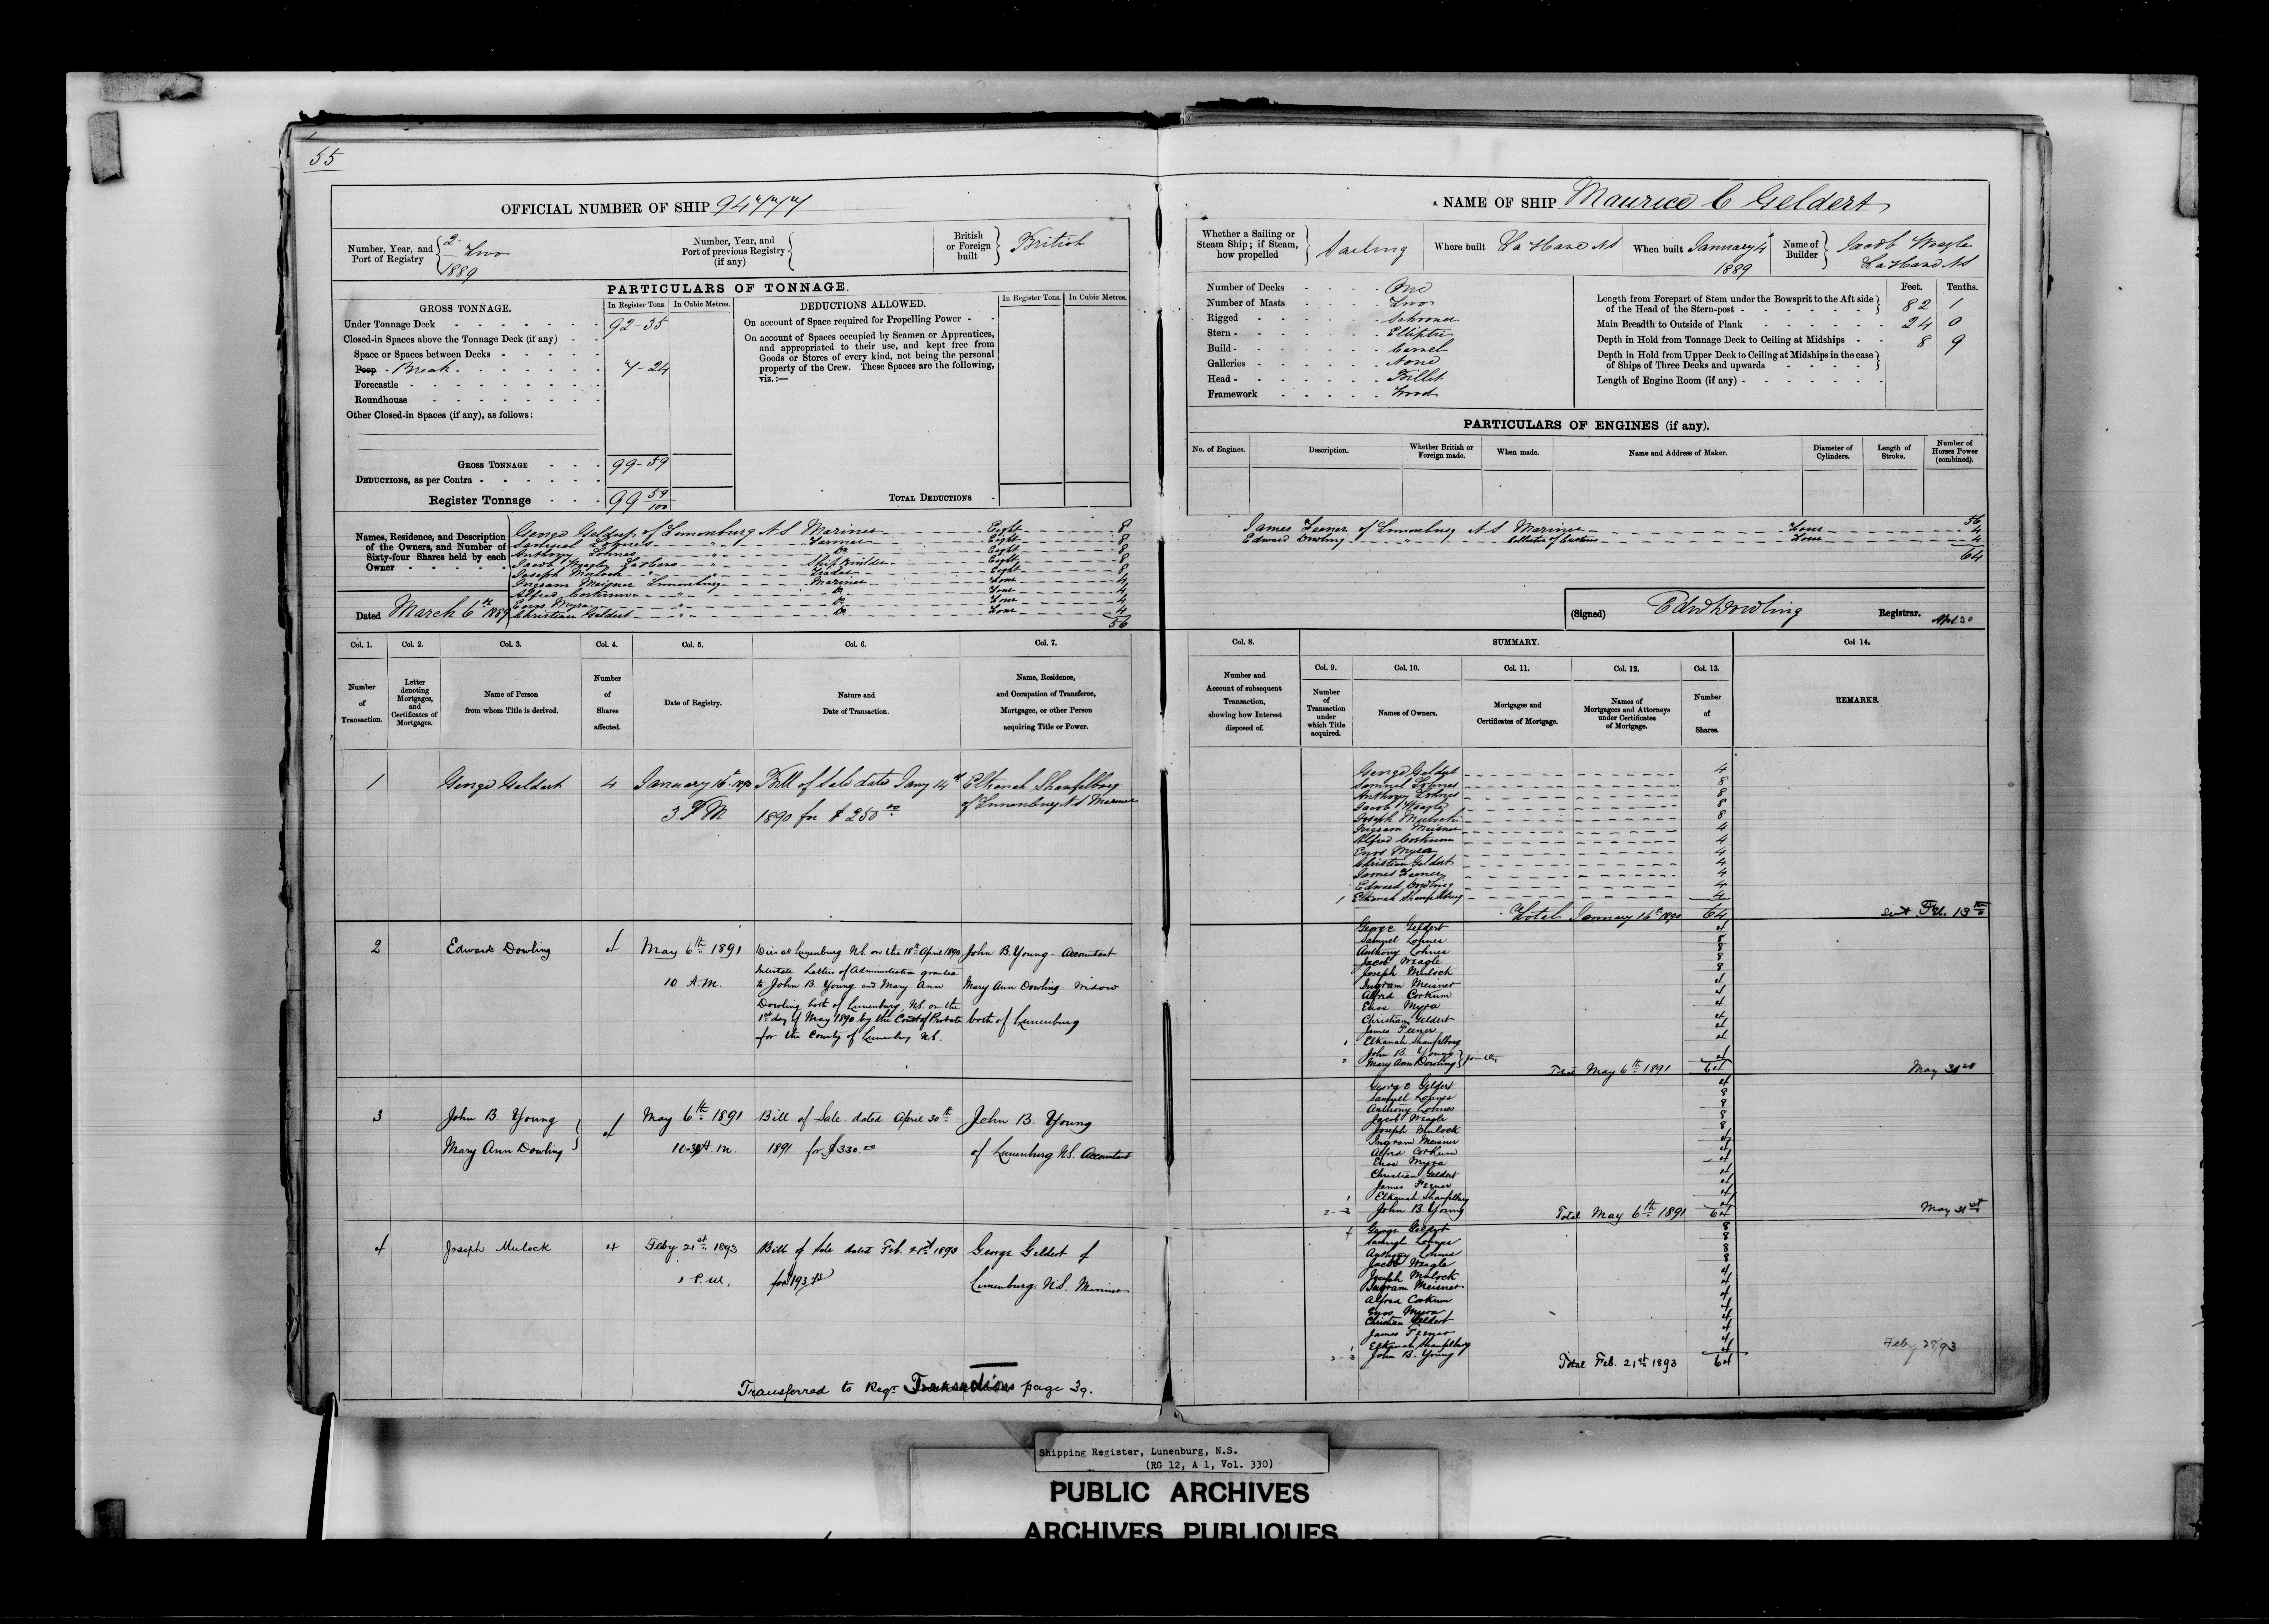 55
OFFICIAL NUMBER OF SHIP 94777
Number, Year, and Port of Registry
2 Two
1889
Number, Year, and Port of previous Registry (if any)
British or Foreign built
British
PARTICULARS OF TONNAGE.
GROSS TONNAGE.
In Register Tons.
In Cubic Metres.
DEDUCTIONS ALLOWED.
In Register Tons.
In Cubic Metres.
Under Tonnage Deck 92-35
Closed-in Spaces above the Tonnage Deck (if any)
Space or Spaces between Decks
Poop - Break 7-24
Forecastle
Roundhouse
Other Closed-in Spaces (if any), as follows:
GROSS TONNAGE 99-59
DEDUCTIONS, as per Contra
Register Tonnage 99 59/100
On account of Space required for Propelling Power
On account of Spaces occupied by Seamen or Apprentices,
and appropriated to their use, and kept free from
Goods or Stores of every kind, not being the personal
property of the Crew. These Spaces are the following,
viz.:—
TOTAL DEDUCTIONS
Names, Residence, and Description
of the Owners, and Number of
Sixty-four Shares held by each
Owner
George Geldert of Lunenburg N S Mariner Eight 8
Samuel Lohnes " Farmer Eight 8
Anthony Lohnes " Do Eight 8
Jacob Weagle LaHave " Ship Builder Eight 8
Joseph Mulock " " Trader Eight 8
Ingram Meisner Lunenburg Mariner Four 4
Alfred Corkum " " Do Four 4
Enos Myra " Do Four 4
Christian Geldert " Do Four 4
56
Dated March 6th 1889
NAME OF SHIP Maurice C Geldert
Whether a Sailing or Steam Ship; if Steam, how propelled
Sailing
Where built LaHave N S
When built January 4 1889
Name of Builder
Jacob Weagle
LaHave N S
Number of Decks One
Number of Masts Two
Rigged Schooner
Stern Elliptic
Build Carvel
Galleries None
Head Billet
Framework Wood
Feet. Tenths.
Length from Forepart of Stem under the Bowsprit to the Aft side
of the Head of the Stern-post 82 1
Main Breadth to Outside of Plank 24 0
Depth in Hold from Tonnage Deck to Ceiling at Midships 8 9
Depth in Hold from Upper Deck to Ceiling at Midships in the case
of Ships of Three Decks and upwards
Length of Engine Room (if any)
PARTICULARS OF ENGINES (if any).
No. of Engines.
Description.
Whether British or Foreign made.
When made.
Name and Address of Maker.
Diameter of Cylinders.
Length of Stroke.
Number of Horses Power (combined).
56
James Feener of Lunenburg N S Mariner Four 4
Edward Dowling " " Collector of Customs Four 4
64
(Signed) Edw Dowling Registrar.
Col. 1.
Col. 2.
Col. 3.
Col. 4.
Col. 5.
Col. 6.
Col. 7.
Number of Transaction.
Letter denoting Mortgages, and Certificates of Mortgages.
Name of Person from whom Title is derived.
Number of Shares affected.
Date of Registry.
Nature and Date of Transaction.
Name, Residence, and Occupation of Transferee, Mortgagee, or other Person acquiring Title or Power.
Col. 8.
SUMMARY.
Col 14.
Col. 9.
Col. 10.
Col. 11.
Col. 12.
Col. 13.
Number and Account of subsequent Transaction, showing how Interest disposed of.
Number of Transaction under which Title acquired.
Names of Owners.
Mortgages and Certificates of Mortgage.
Names of Mortgagees and Attorneys under Certificates of Mortgage.
Number of Shares.
REMARKS.
1 George Geldert 4 January 16th 1890 Bill of Sale dated Jany 14th Elkanah Shaufelburg
3 P M 1890 for $250.00 of Lunenburg N S Mariner
George Geldert 4
Samuel Lohnes 8
Anthony Lohnes 8
Jacob Weagle 8
Joseph Mulock 8
Ingram Meisner 4
Alfred Corkum 4
Enos Myra 4
Christian Geldert 4
James Feener 4
Edward Dowling 4
1 Elkanah Shaufelburg 4
Total January 16th 1890 64
Sent Feb. 13th
2 Edward Dowling 4 May 6th 1891 Died at Lunenburg N.S. on the 18th April 1890 John B. Young - Accountant
Intestate Letters of Administration granted
10 A.M. to John B Young and Mary Ann Mary Ann Dowling Widow
Dowling both of Lunenburg, N.S. on the
1st day of May 1890 by the Court of Probate both of Lunenburg
for the County of Lunenburg N.S.
George Geldert 4
Samuel Lohnes 8
Anthony Lohnes 8
Jacob Weagle 8
Joseph Mulock 8
Ingram Meisner 4
Alfred Corkum 4
Enos Myra 4
Christian Geldert 4
James Feener 4
1 Elkanah Shaufelburg 4
2 John B. Young
Mary Ann Dowling } Jointly 4
Total May 6th 1891 64
May 31st
3 John B. Young 4 May 6th 1891 Bill of Sale dated April 30th John B. Young
Mary Ann Dowling 10-30 A.M. 1891 for $330.00 of Lunenburg N.S. Accountant
George Geldert 4
Samuel Lohnes 8
Anthony Lohnes 8
Jacob Weagle 8
Joseph Mulock 8
Ingram Meisner 4
Alfred Corkum 4
Enos Myra 4
Christian Geldert 4
James Feener 4
1 Elkanah Shaufelburg 4
2-3 John B. Young 4
Total May 6th 1891 64
May 31st
4 Joseph Mulock 4 Feby 21st 1893 Bill of Sale dated Feb. 21st 1893 George Geldert of
1 P.M. for 193 Lunenburg, N.S. Mariner
4 George Geldert 8
Samuel Lohnes 8
Anthony Lohnes 8
Jacob Weagle 8
Joseph Mulock 4
Ingram Meisner 4
Alfred Corkum 4
Enos Myra 4
Christian Geldert 4
James Feener 4
1 Elkanah Shaufelburg 4
2-3 John B. Young 4
Total Feb. 21st 1893 64
Transferred to Regr Transactions page 39.
Shipping Register, Lunenburg, N.S.
(RG 12, A 1, Vol. 330)
PUBLIC ARCHIVES
ARCHIVES PUBLIQUES